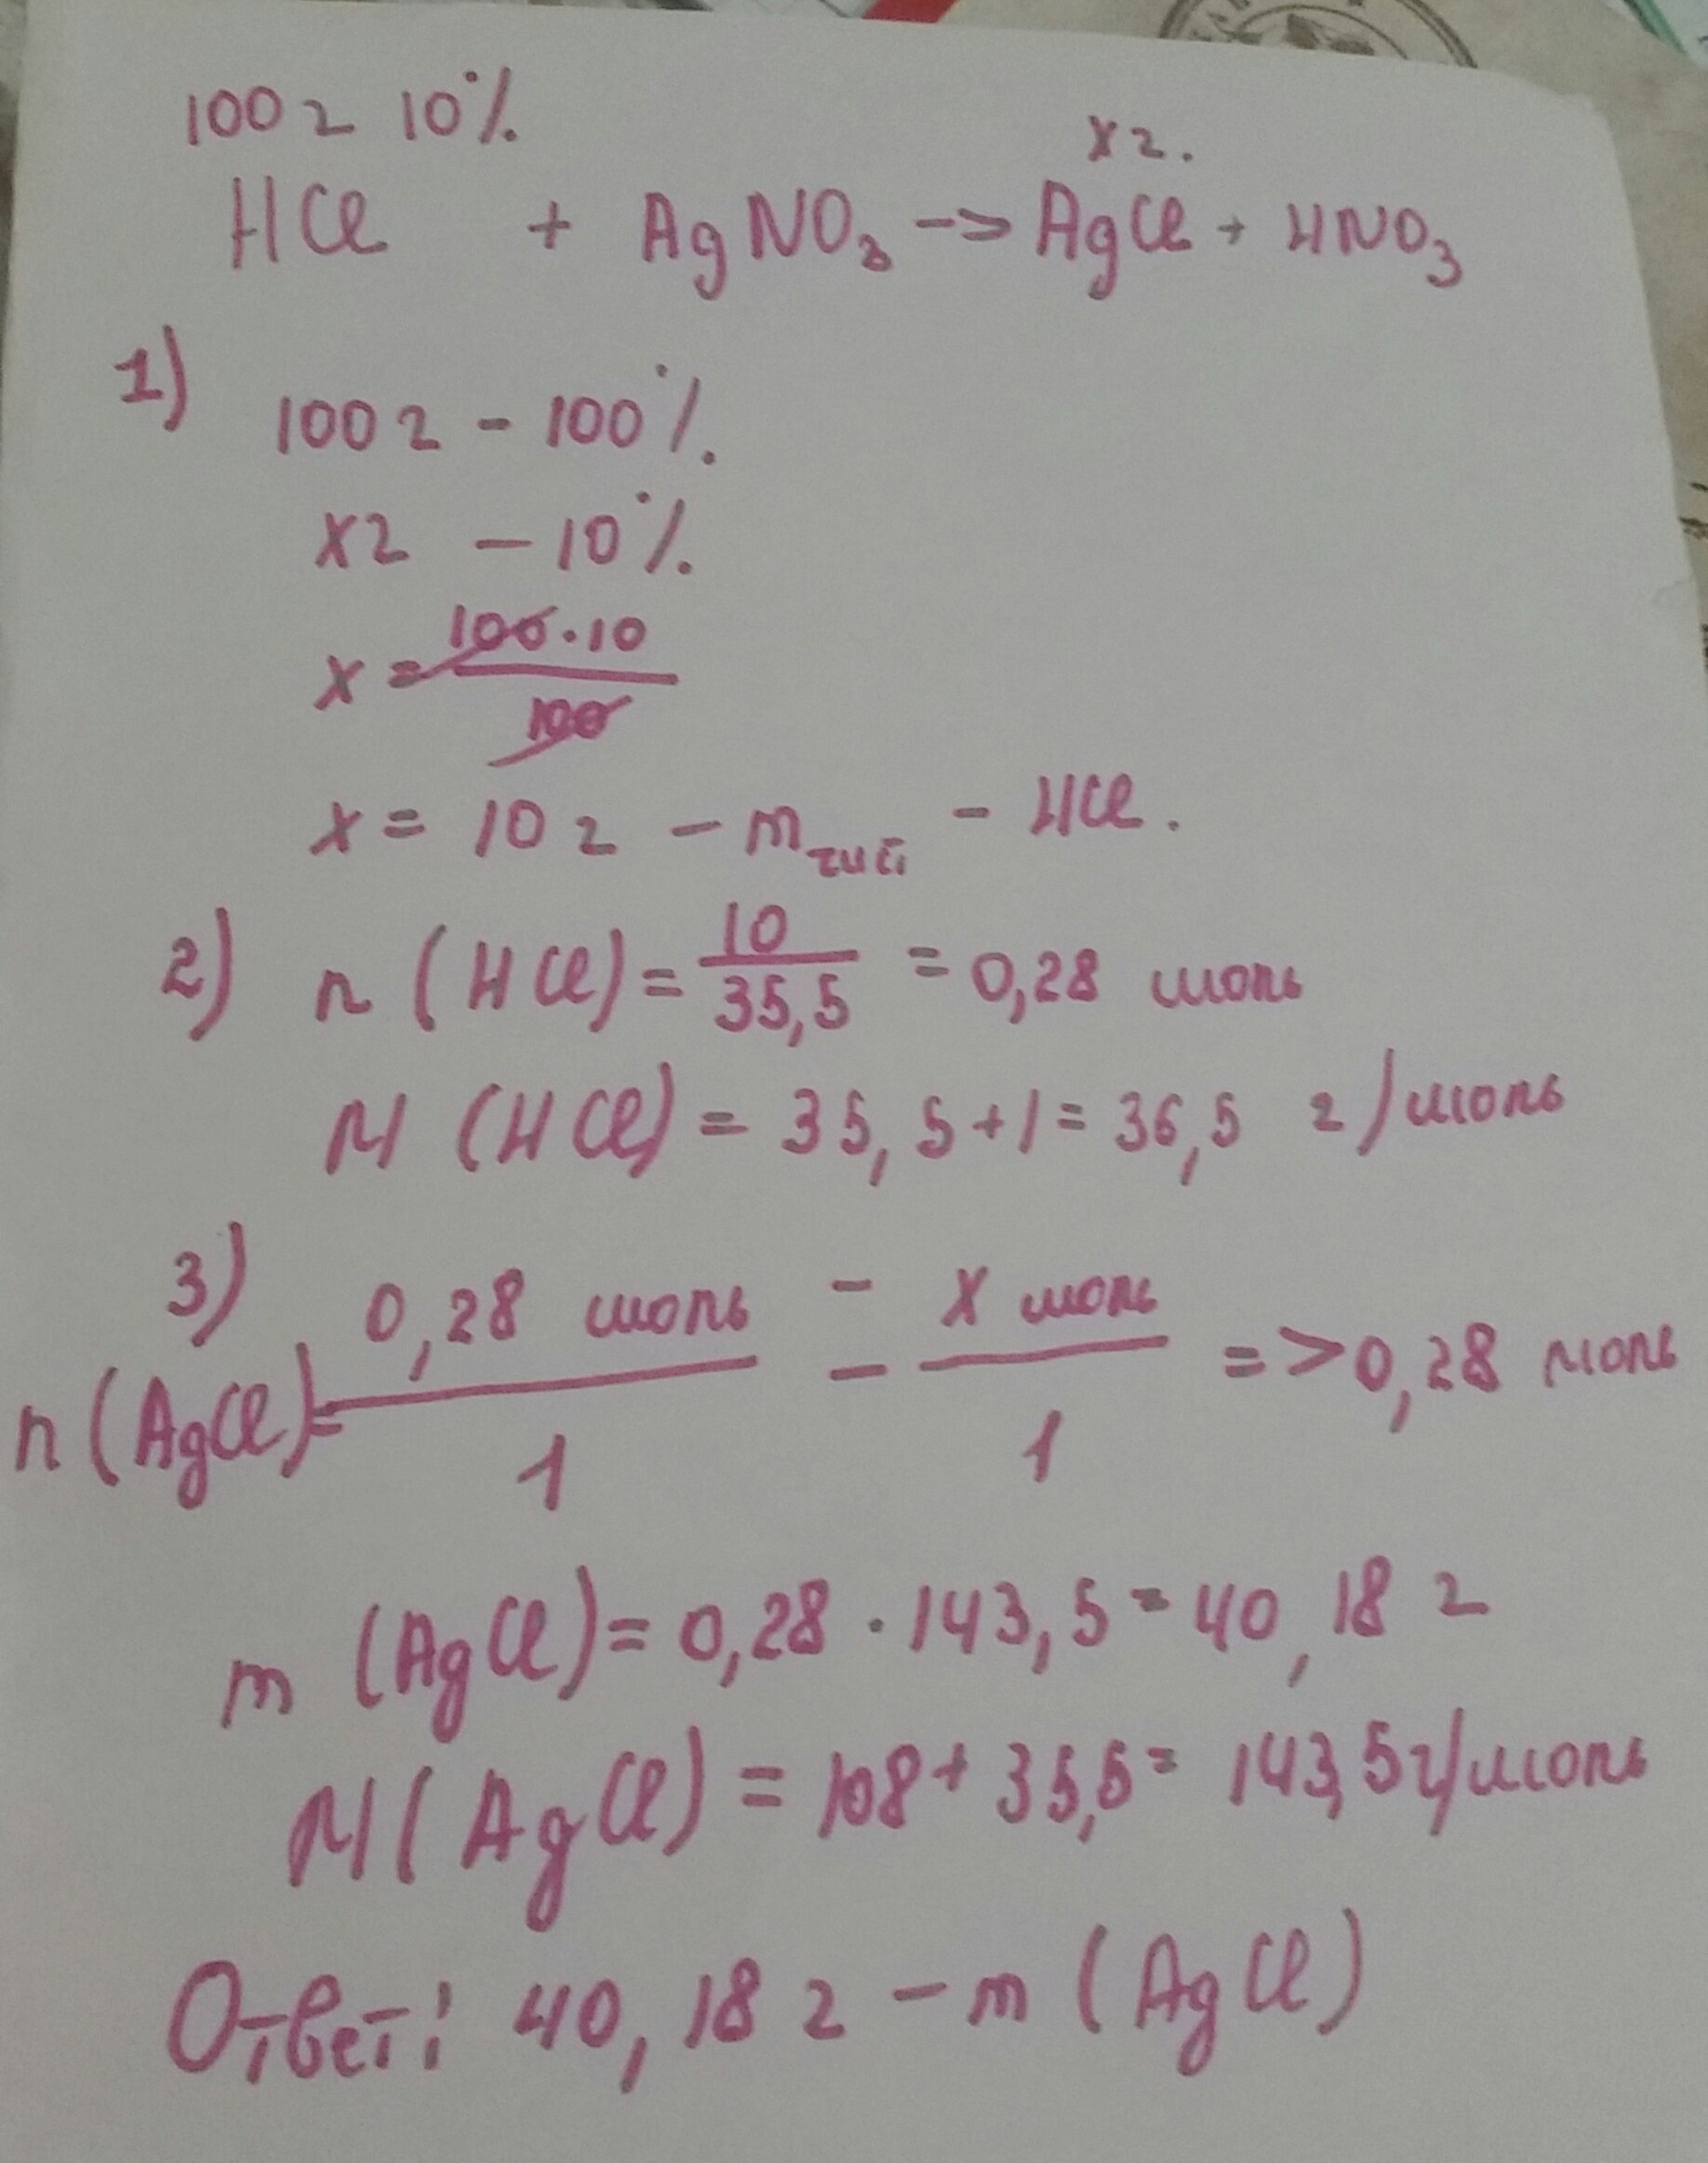 100 г 10%
х г.
HCl + AgNO3 -> AgCl + HNO3
1)
100 г - 100%
х г - 10%
x = 100·10
100
x = 10 г - m - HCl.
2) n (HCl) = 10 / 35,5 = 0,28 моль
M (HCl) = 35,5+1 = 36,5 г/моль
3) 0,28 моль - х моль
n(AgCl)= - => 0,28 моль
1 1
m (AgCl) = 0,28 · 143,5 = 40,18 г
M(AgCl) = 108+35,5 = 143,5 г/моль
Ответ: 40,18 г - m (AgCl)